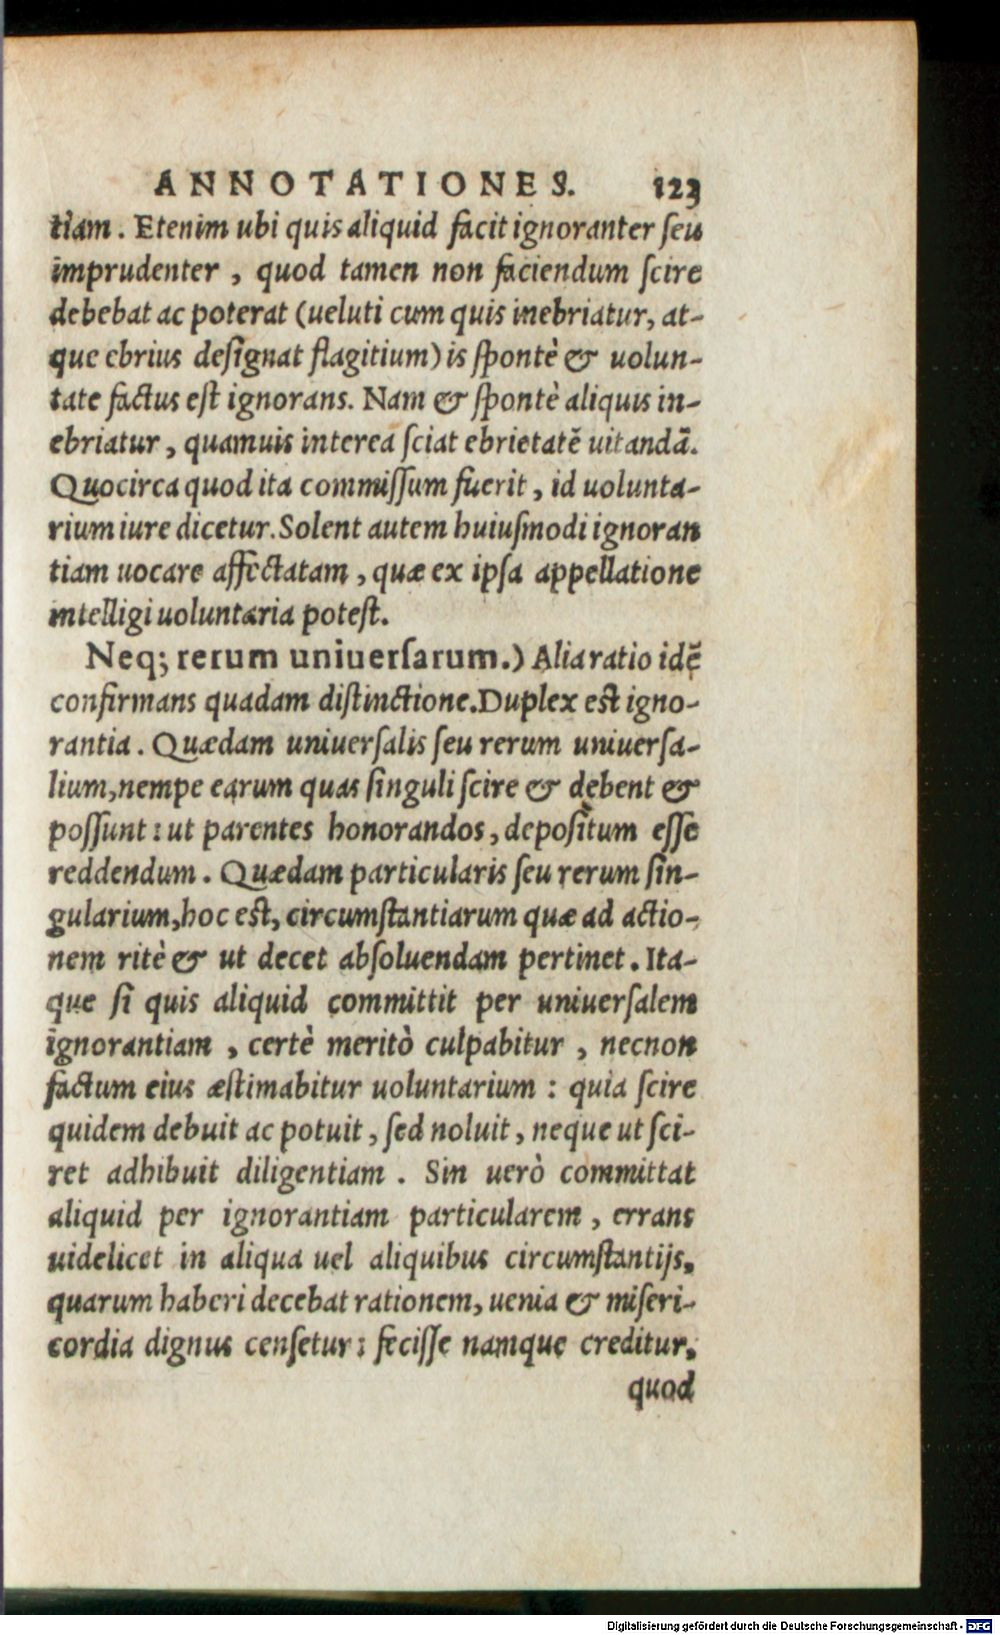 ANNOTATIONES. 123
tiam. Etenim ubi quis aliquid facit ignoranter ſeu
imprudenter, quod tamen non faciendum ſcire
debebat ac poterat (ueluti cum quis inebriatur, at-
que ebrius deſignat flagitium) is ſpontè & uolun-
tate factus eſt ignorans. Nam & ſpontè aliquis in-
ebriatur, quamuis interea ſciat ebrietatē uitandā.
Quocirca quod ita commiſſum fuerit, id uolunta-
rium iure dicetur. Solent autem huiuſmodi ignoran
tiam uocare affectatam, quæ ex ipſa appellatione
intelligi uoluntaria poteſt.
Neq; rerum uniuerſarum.) Alia ratio idē
confirmans quadam diſtinctione. Duplex eſt igno-
rantia. Quædam uniuerſalis ſeu rerum uniuerſa-
lium, nempe earum quas ſinguli ſcire & debent &
poſſunt: ut parentes honorandos, depoſitum eſſe
reddendum. Quædam particularis ſeu rerum ſin-
gularium, hoc eſt, circumſtantiarum quæ ad actio-
nem ritè & ut decet abſoluendam pertinet. Ita-
que ſi quis aliquid committit per uniuerſalem
ignorantiam, certè meritò culpabitur, necnon
factum eius æſtimabitur uoluntarium: quia ſcire
quidem debuit ac potuit, ſed noluit, neque ut ſci-
ret adhibuit diligentiam. Sin uerò committat
aliquid per ignorantiam particularem, errans
uidelicet in aliqua uel aliquibus circumſtantijs,
quarum haberi decebat rationem, uenia & miſeri-
cordia dignus cenſetur: feciſſe namque creditur,
quod
Digitalisierung gefördert durch die Deutsche Forschungsgemeinschaft - DFG